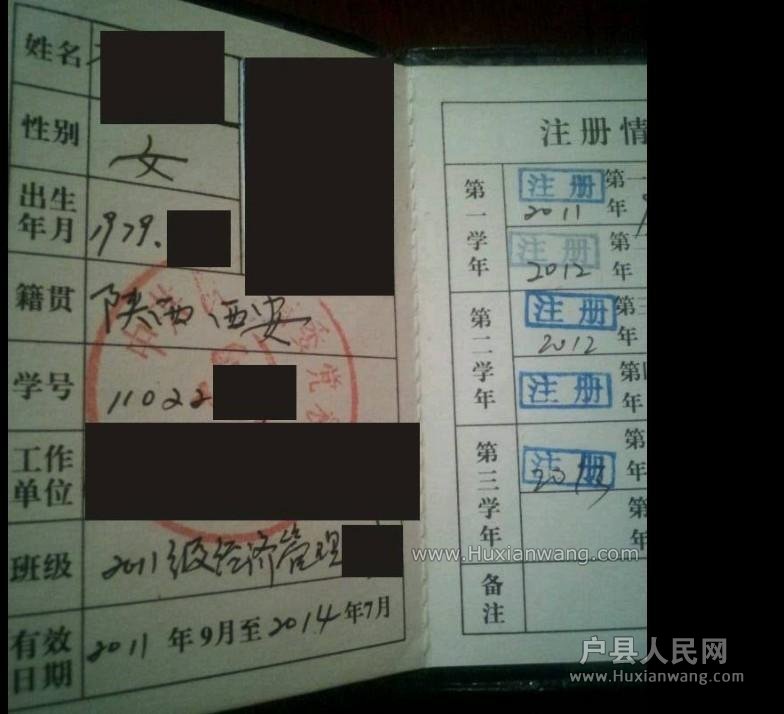 姓名
性别 女
出生年月 1979.
籍贯 陕西 西安
学号 11022
工作单位
班级 2011级经济管理
有效日期 2011 年9月至2014年7月
注册情
第一学年
注册 第一
2011 年
注册 第二
2012 年
第二学年
注册 第三
2012 年
注册 第四
年
第三学年
注册 第
年
第
年
备注
www.Huxianwang.com
户县人民网
www.Huxianwang.com